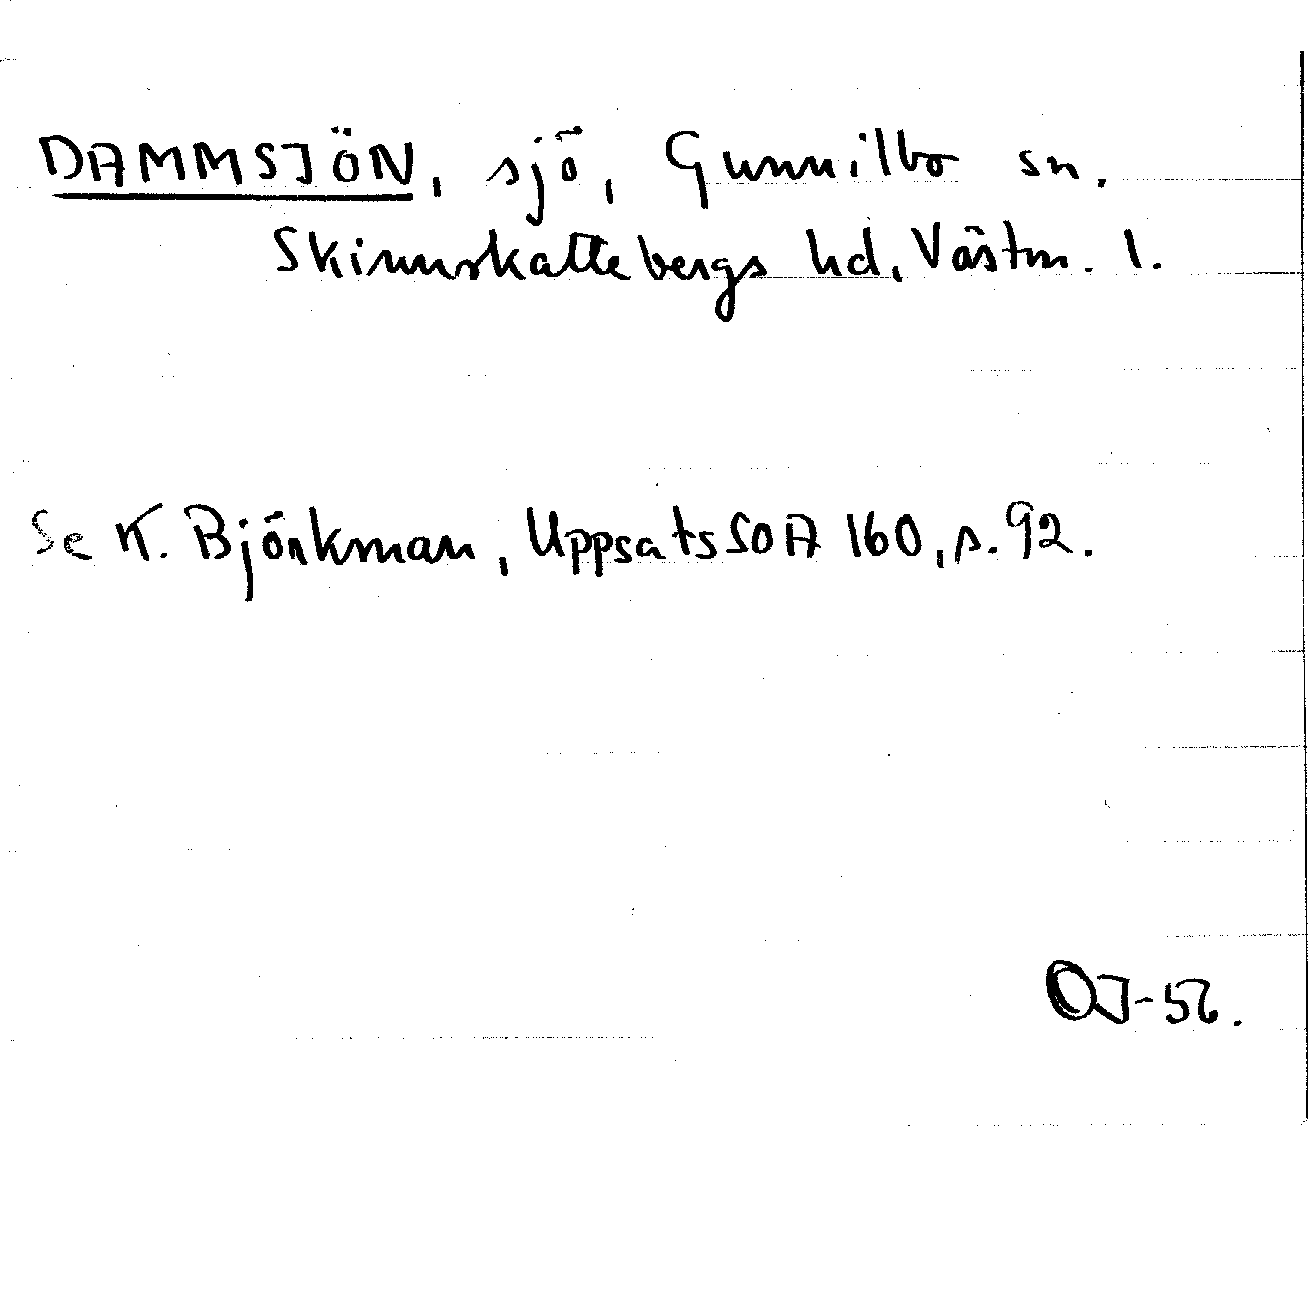 DAMMSJÖN, sjö, Gunnilbo sn.
Skinnskattebergs hd, Västm. l.
Se K. Björkman, Uppsats SOA 160, s. 92.
OJ-56.